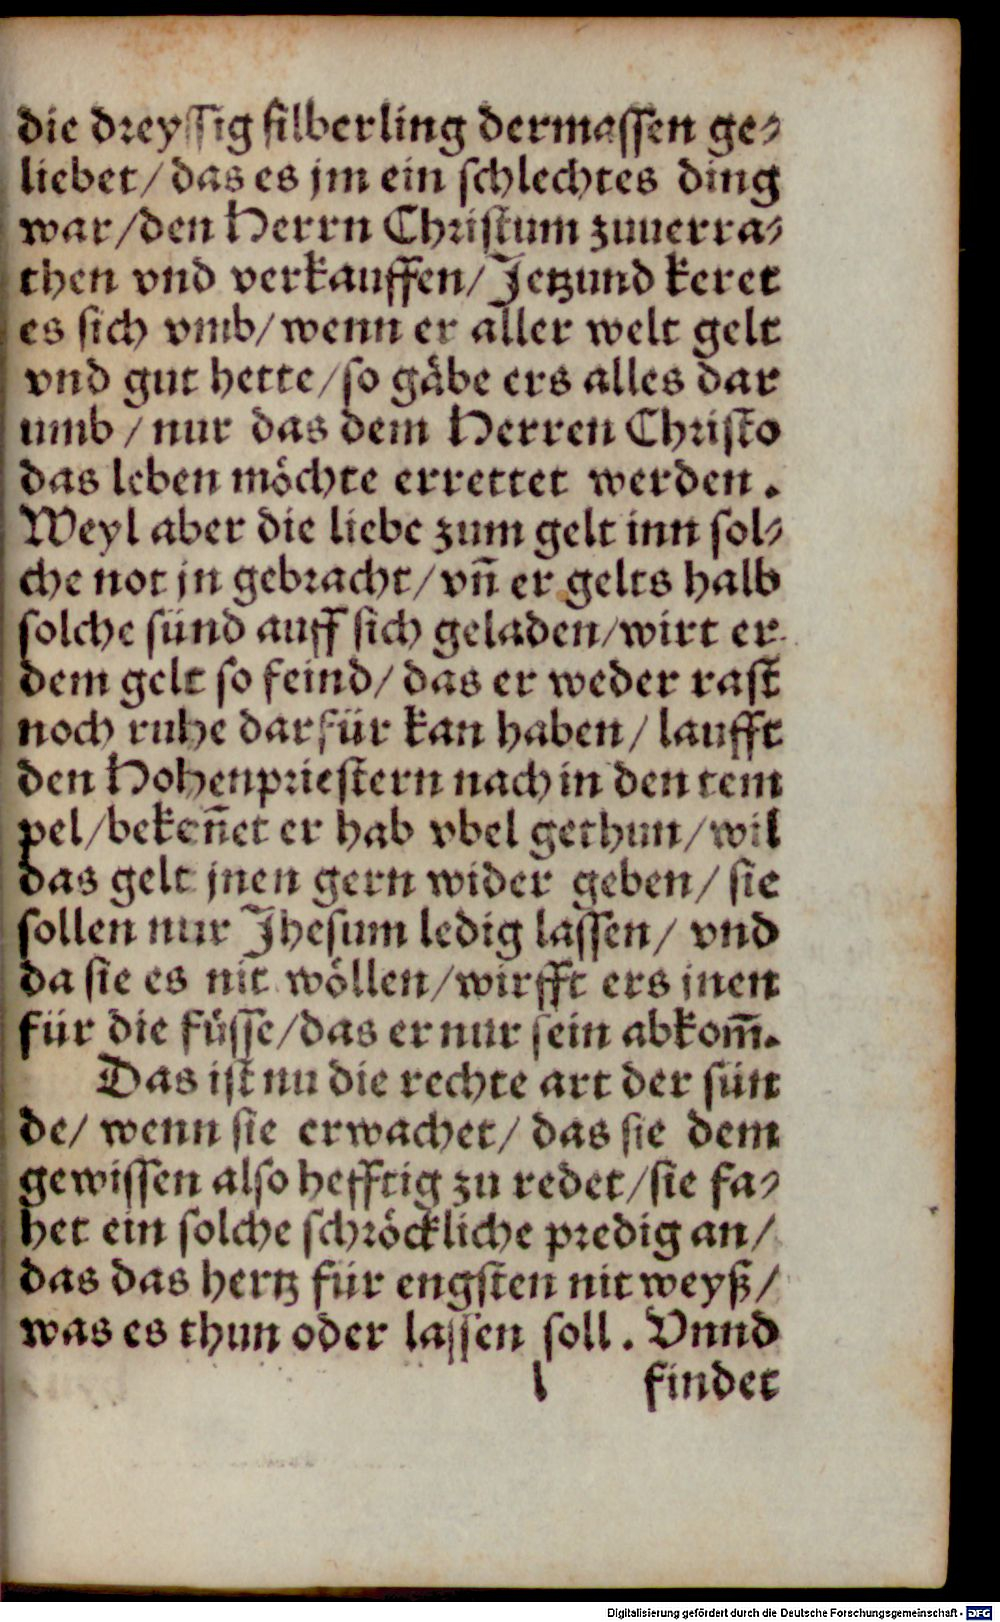 die dreyssig silberling dermassen ge⸗
liebet/ das es jm ein schlechtes ding
war/ den Herrn Christum zuuerra⸗
then vnd verkauffen/ Jetzund keret
es sich vmb/ wenn er aller welt gelt
vnd gut hette/ so gäbe ers alles dar
umb/ nur das dem Herren Christo
das leben möchte errettet werden.
Weyl aber die liebe zum gelt inn sol⸗
che not jn gebracht/ vñ er gelts halb
solche sünd auff sich geladen/ wirt er
dem gelt so feind/ das er weder rast
noch ruhe darfür kan haben/ laufft
den Hohenpriestern nach in den tem
pel/ bekeñet er hab vbel gethun/ wil
das gelt jnen gern wider geben/ sie
sollen nur Jhesum ledig lassen/ vnd
da sie es nit wöllen/ wirfft ers jnen
für die füsse/ das er nur sein abkom̄.
Das ist nu die rechte art der sün
de/ wenn sie erwachet/ das sie dem
gewissen also hefftig zu redet/ sie fa⸗
het ein solche schröckliche predig an/
das das hertz für engsten nit weyß/
was es thun oder lassen soll. Vnnd
l findet
Digitalisierung gefördert durch die Deutsche Forschungsgemeinschaft - DFG